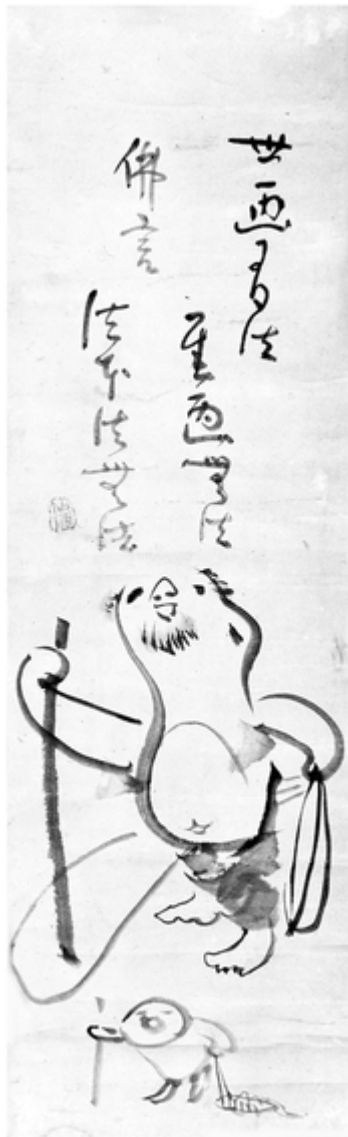 世画有法
厓画無法
佛言
法本法無法